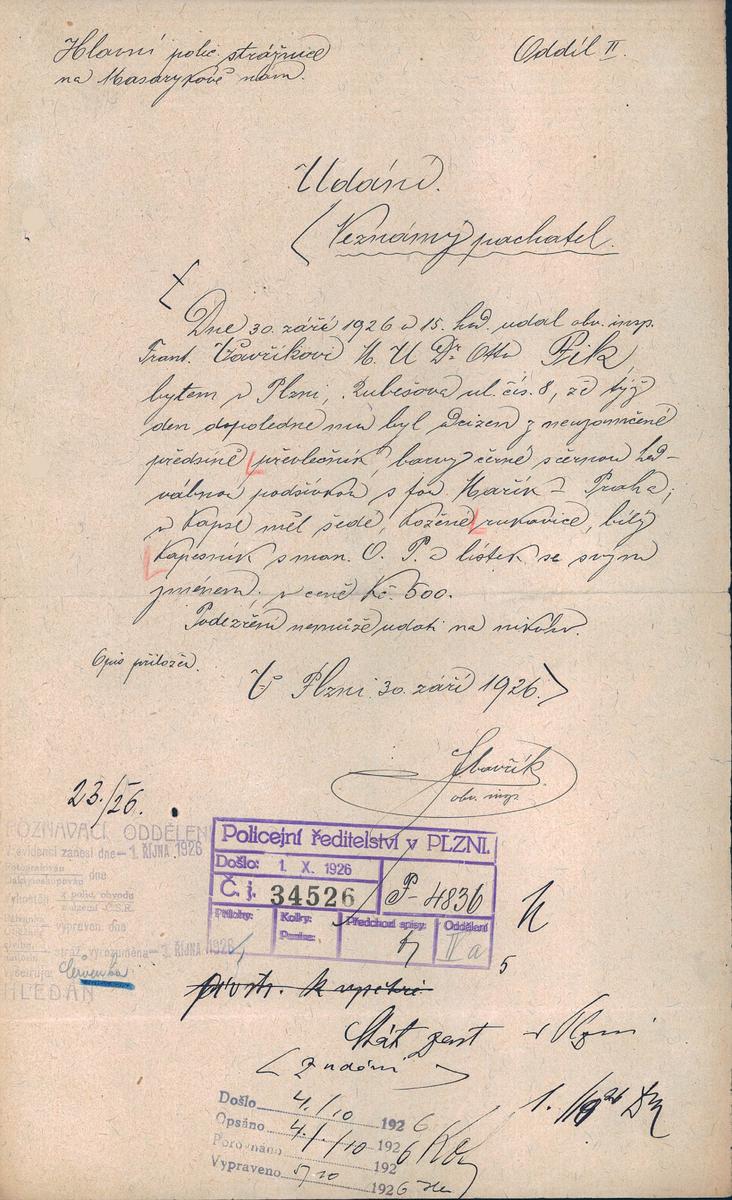 Hlavní polic. strážnice
na Masarykově nám.
Oddíl II.
Udání.
Neznámý pachatel.
Dne 30. září 1926 o 15. hod. udal obv. insp.
Frant. Vavříkovi M. U Dr. Otto Pik,
bytem v Plzni, Rubešova ul. čís. 8, že týž
den dopoledne mu byl odcizen z neuzamčené
předsíně převlečník, barvy černé s černou hed-
vábnou podšívkou s for. Mařík - Praha;
v kapse měl šedé, kožené rukavice, bílý
kapesník s mon. O. P. a lístek se svým
jménem. v ceně Kč. 500.
Podezření nemůže udati na nikoho.
Opis přiložen.
V Plzni 30. září 1926.
Vavřík
obv. insp.
23./26.
POZNÁVACÍ ODDĚLENÍ
V evidenci zanesl dne - 1. ŘÍJNA 1926
Fotografován
Daktyloskopován dne
Vyhoštěn z polic. obvodu
z území Č.S.R.
vypraven dne
stráž vyrozuměna - 3. ŘÍJNA 1926
Červenka
HLEDÁN
Policejní ředitelství v PLZNI.
Došlo: 1. X. 1926
Č. j. 34526
P-4836
Přílohy: Kolky: Předchozí spisy: Oddělení
IV a
5
Stát. zast. v Plzni
z udání
1. /10 26
Došlo 4./10 1926
Opsáno 4./10 1926
Porovnáno 1926
Vypraveno 5/10 1926